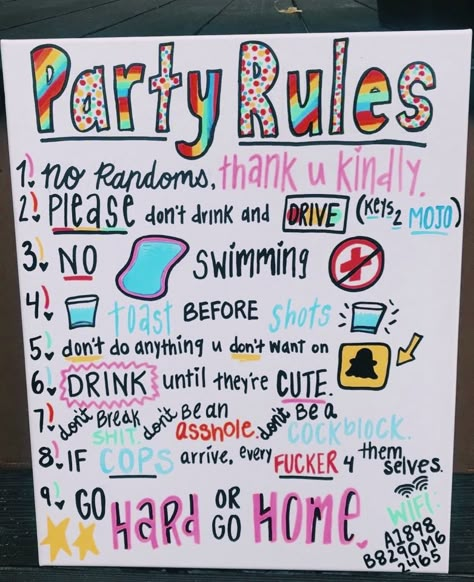 Party Rules
1. no Randoms, thank u kindly.
2. Please don't drink and DRIVE (Keys 2 MOJO)
3. NO swimming
4. toast BEFORE shots
5. don't do anything u don't want on
6. DRINK until they're CUTE.
7. don't Break SHIT. don't Be an asshole. don't Be a cockblock.
8. IF COPS arrive, every FUCKER 4 themselves.
9. GO HARD OR GO HOME.
WIFI:
A1898
B8290M6
2465